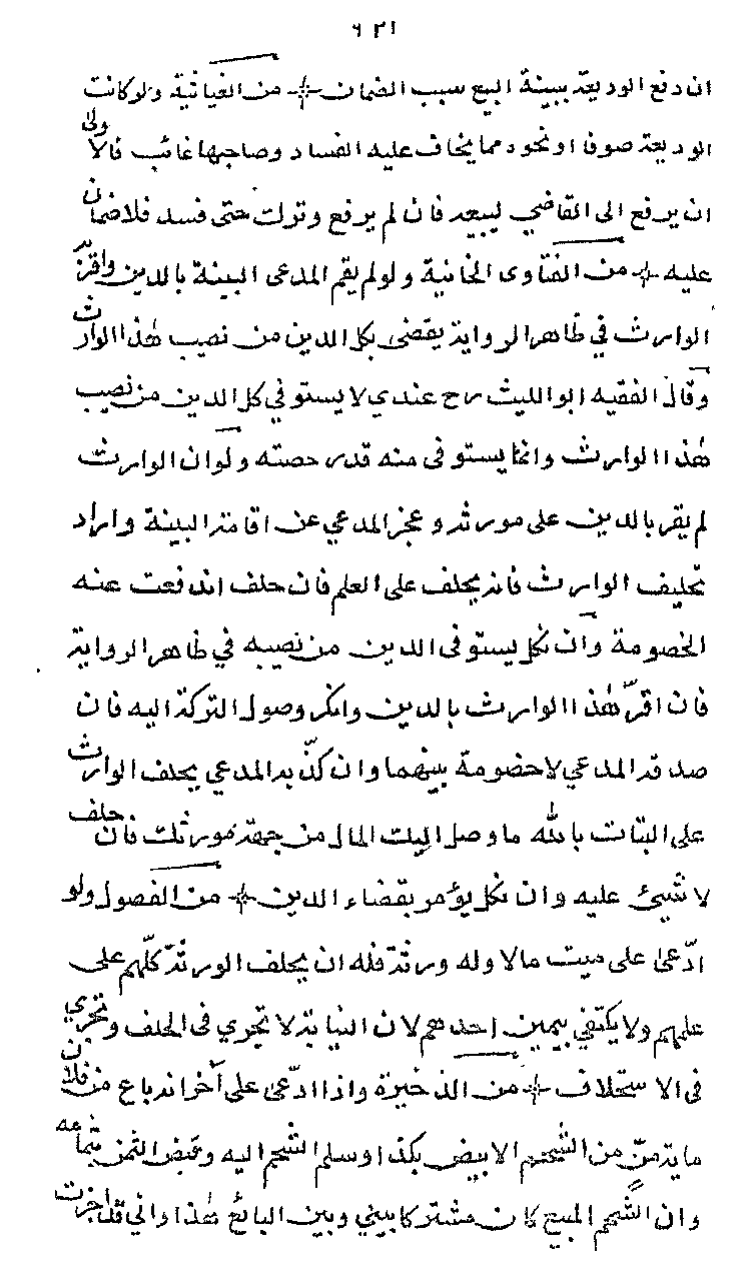 ٦٣١
ان دفع الوديعة ببينة البيع سبب الضمان من الغياثية ولو كانت
الوديعة صوفا او نحوه مما يخاف عليه الفساد وصاحبها غائب فالاولى
ان يرفع الى القاضي ليبيعه فان لم يرفع وترك حتى فسد فلا ضمان
عليه من الفتاوى الخانية ولو لم يقم المدعى البينة بالدين واقر به
الوارث في ظاهر الرواية يقضى بكل الدين من نصيب هذا الوارث
وقال الفقيه ابو الليث رح عندي لا يستوفي كل الدين من نصيب
هذا الوارث وانما يستوفى منه قدر حصته ولو ان الوارث
لم يقر بالدين على مورثه وعجز المدعي عن اقامة البينة واراد
تحليف الوارث فانه يحلف على العلم فان حلف اندفعت عنه
الخصومة وان نكل يستوفى الدين من نصيبه في ظاهر الرواية
فان اقرّ هذا الوارث بالدين وانكر وصول التركة اليه فان
صدقه المدعي لا خصومة بينهما وان كذّبه المدعي يحلف الوارث
على البتات بالله ما وصل اليك المال من جهة مورثك فان حلف
لا شيئ عليه وان نكل يؤمر بقضاء الدين من الفصول ولو
ادّعى على ميت مالا وله ورثة فله ان يحلف الورثة كلّهم على
علمهم ولا يكتفي بيمين احدهم لان النيابة لا تجري فى الحلف وتجري
فى الاستحلاف من الذخيرة واذا ادّعى على آخر انه باع من فلان
ماية منّ من الشحم الابيض بكذا وسلم الشحم اليه وقبض الثمن بتمامه
وان الشحم المبيع كان مشتركا بيني وبين البائع هذا واني قد اجزت